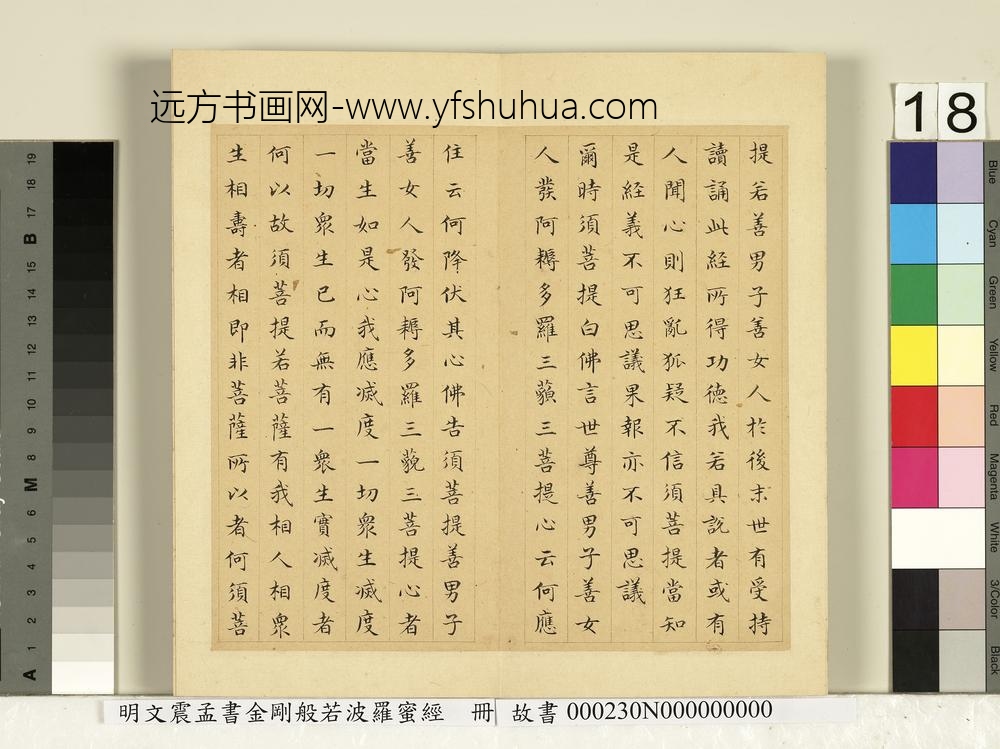 远方书画网-www.yfshuhua.com
提若善男子善女人於後末世有受持
讀誦此經所得功德我若具說者或有
人聞心則狂亂狐疑不信須菩提當知
是經義不可思議果報亦不可思議
爾時須菩提白佛言世尊善男子善女
人發阿耨多羅三藐三菩提心云何應
住云何降伏其心佛告須菩提善男子
善女人發阿耨多羅三藐三菩提心者
當生如是心我應滅度一切衆生滅度
一切衆生已而無有一衆生實滅度者
何以故須菩提若菩薩有我相人相衆
生相壽者相即非菩薩所以者何須菩
明文震孟書金剛般若波羅蜜經 冊 故書 000230N000000000
18
Blue
Cyan
Green
Yellow
Red
Magenta
White
3/Color
Black
A 1 2 3 4 5 6 M 8 9 10 11 12 13 14 15 B 17 18 19